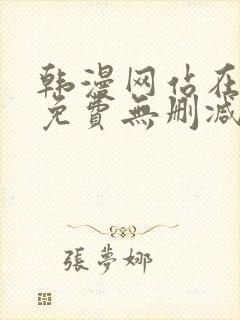 韩漫网站在
免費無删减
張夢娜